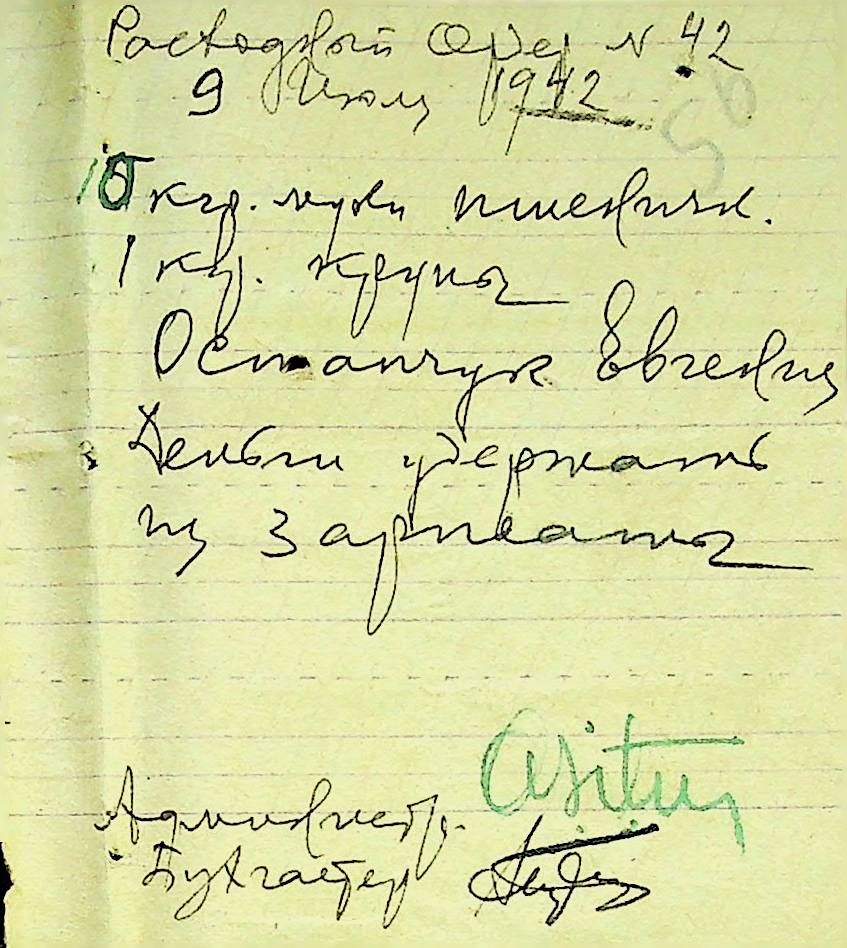 Расходный Ордер N 42
56
9 Июля 1942
10 кгр. муки пшеничн.
1 кгр. крупы
Остапчук Евгения
Деньги удержать
из зарплаты
Администр.
Бухгалтер